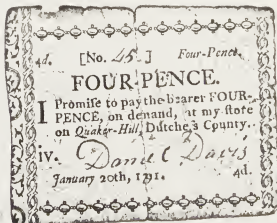 4d. [No. 45.] Four-Pence.
FOUR-PENCE.
I Promise to pay the bearer FOUR-
PENCE, on demand, at my store
on Quaker-Hill, Dutche's County.
iv. Daniel Davis
January 20th, 1791. 4d.